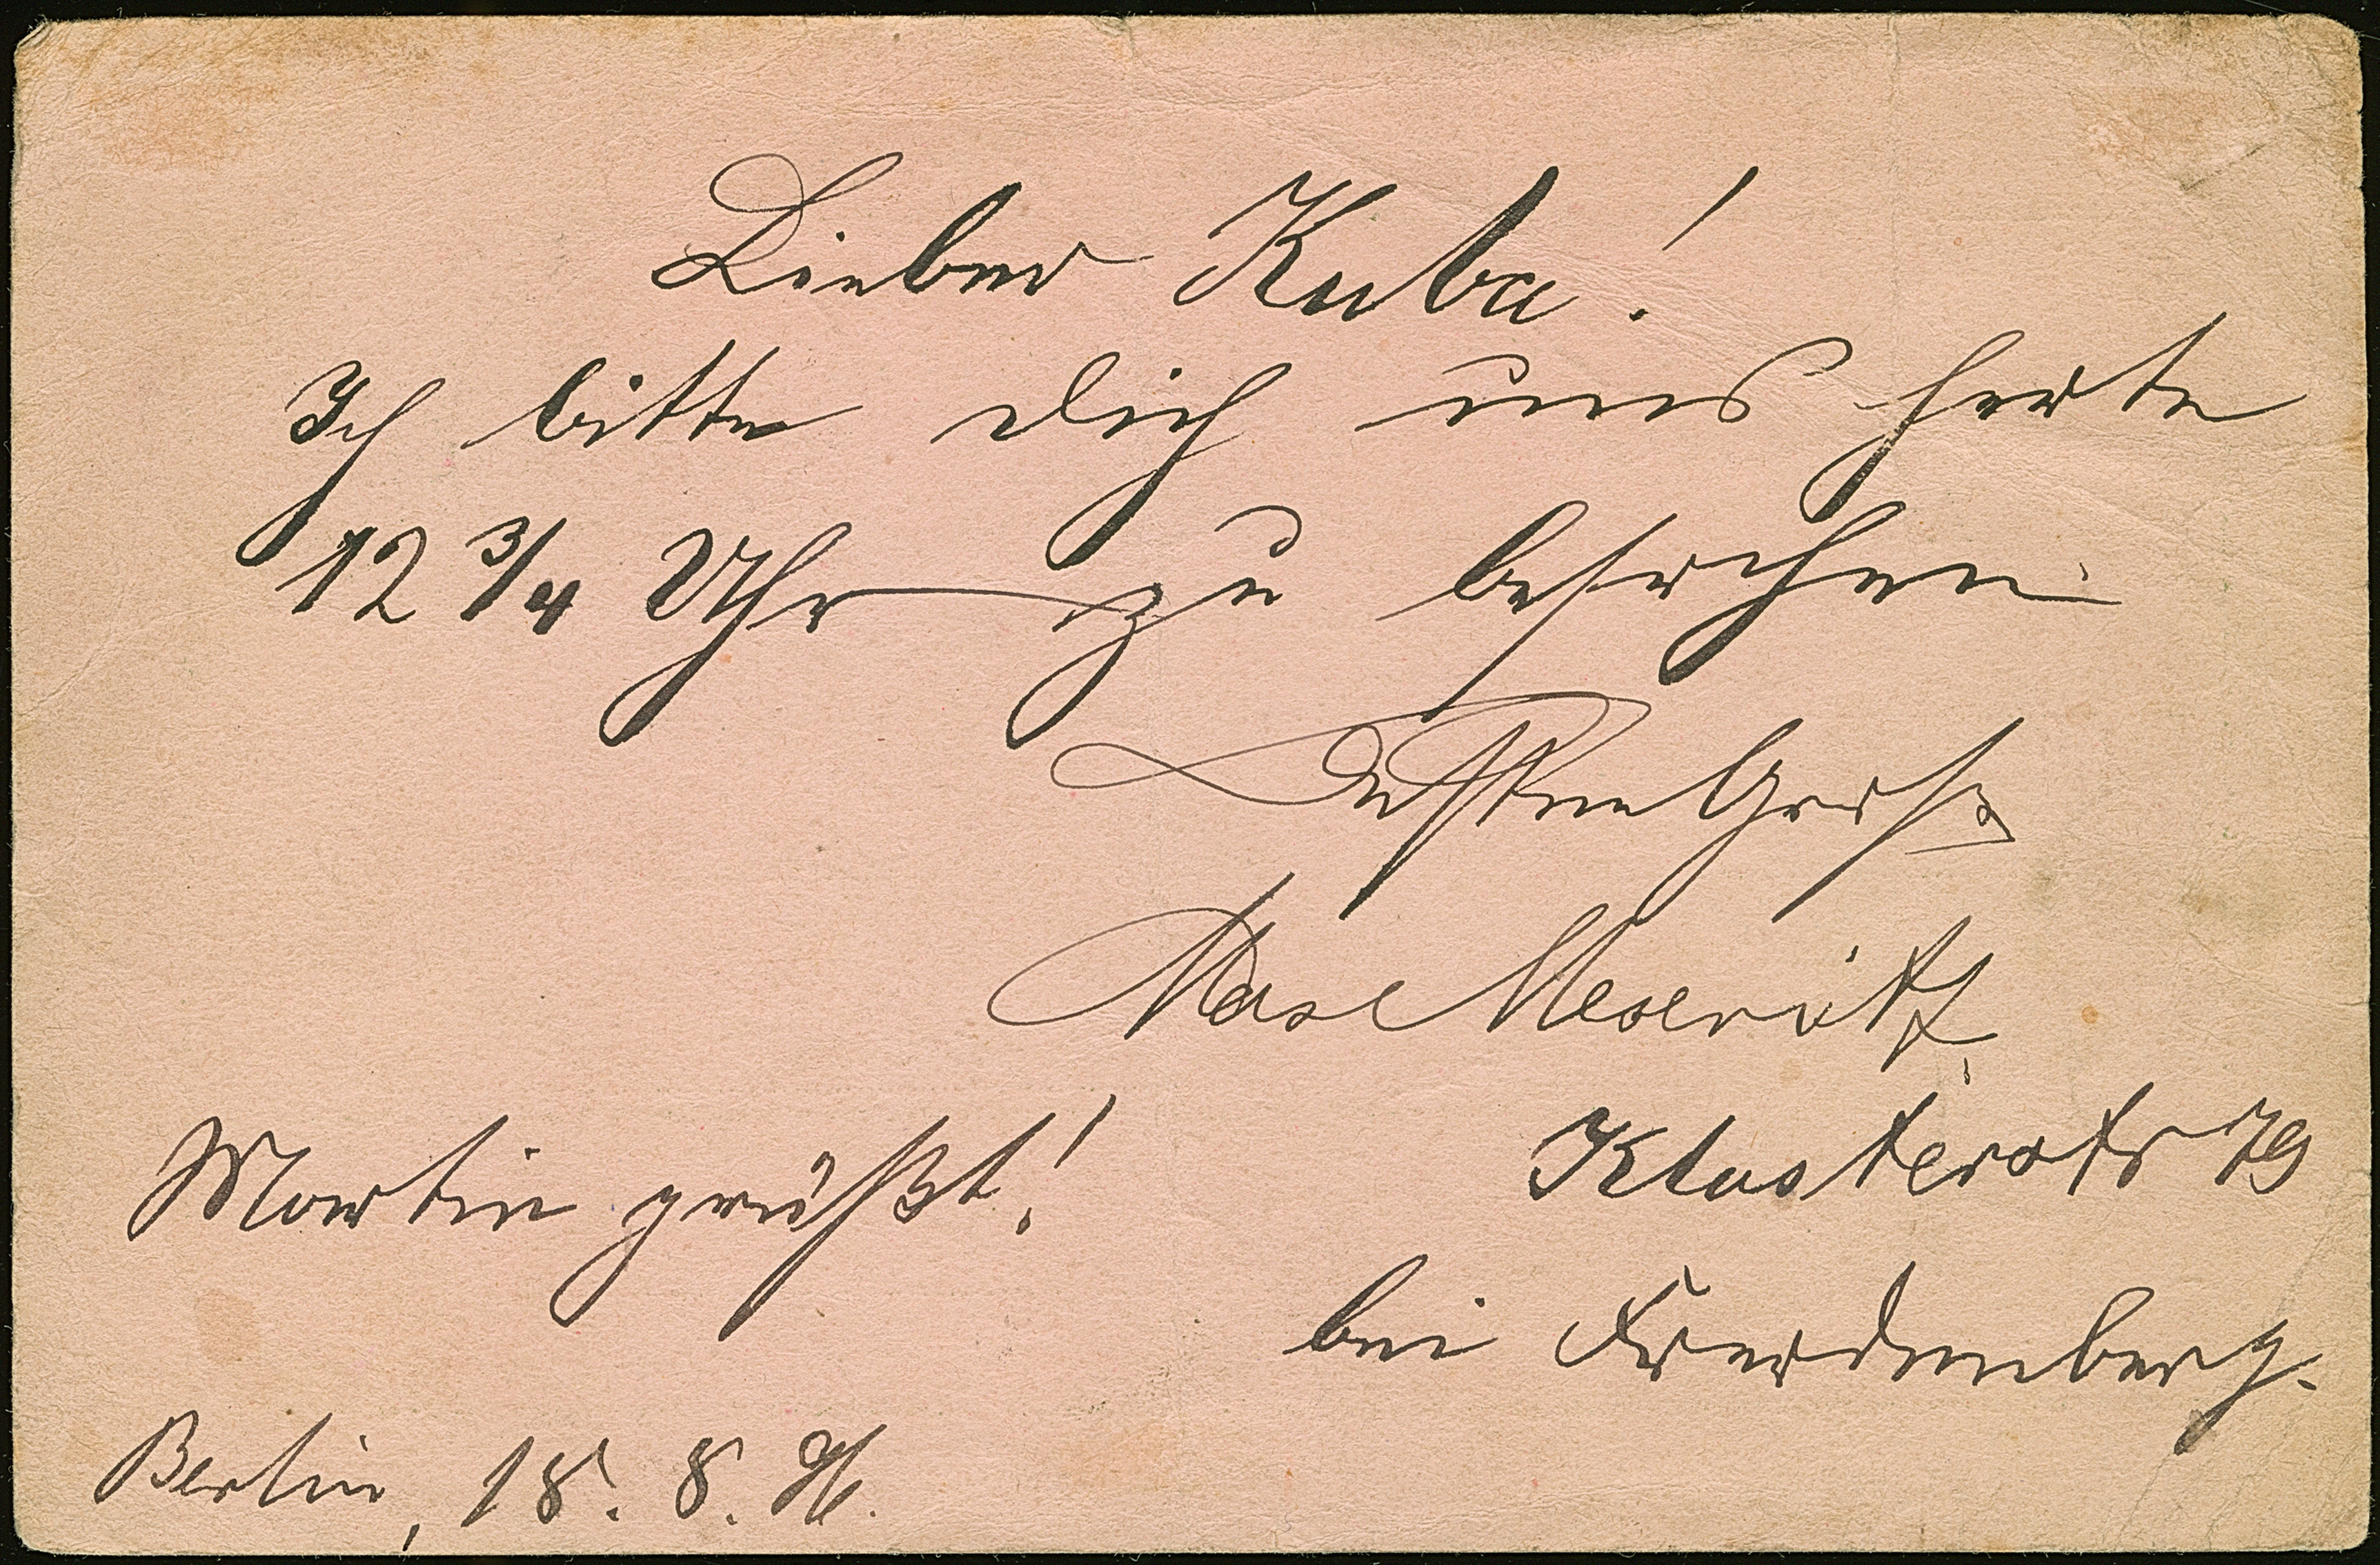 Lieber Kuba!
Ich bitte dich uns heute
12 3/4 Uhr zu besuchen.
Besten Gruß
Max Meseritz
Martin grüßt!
Klosterstr 79
bei Freudenberg.
Berlin, 18. 8. 91.